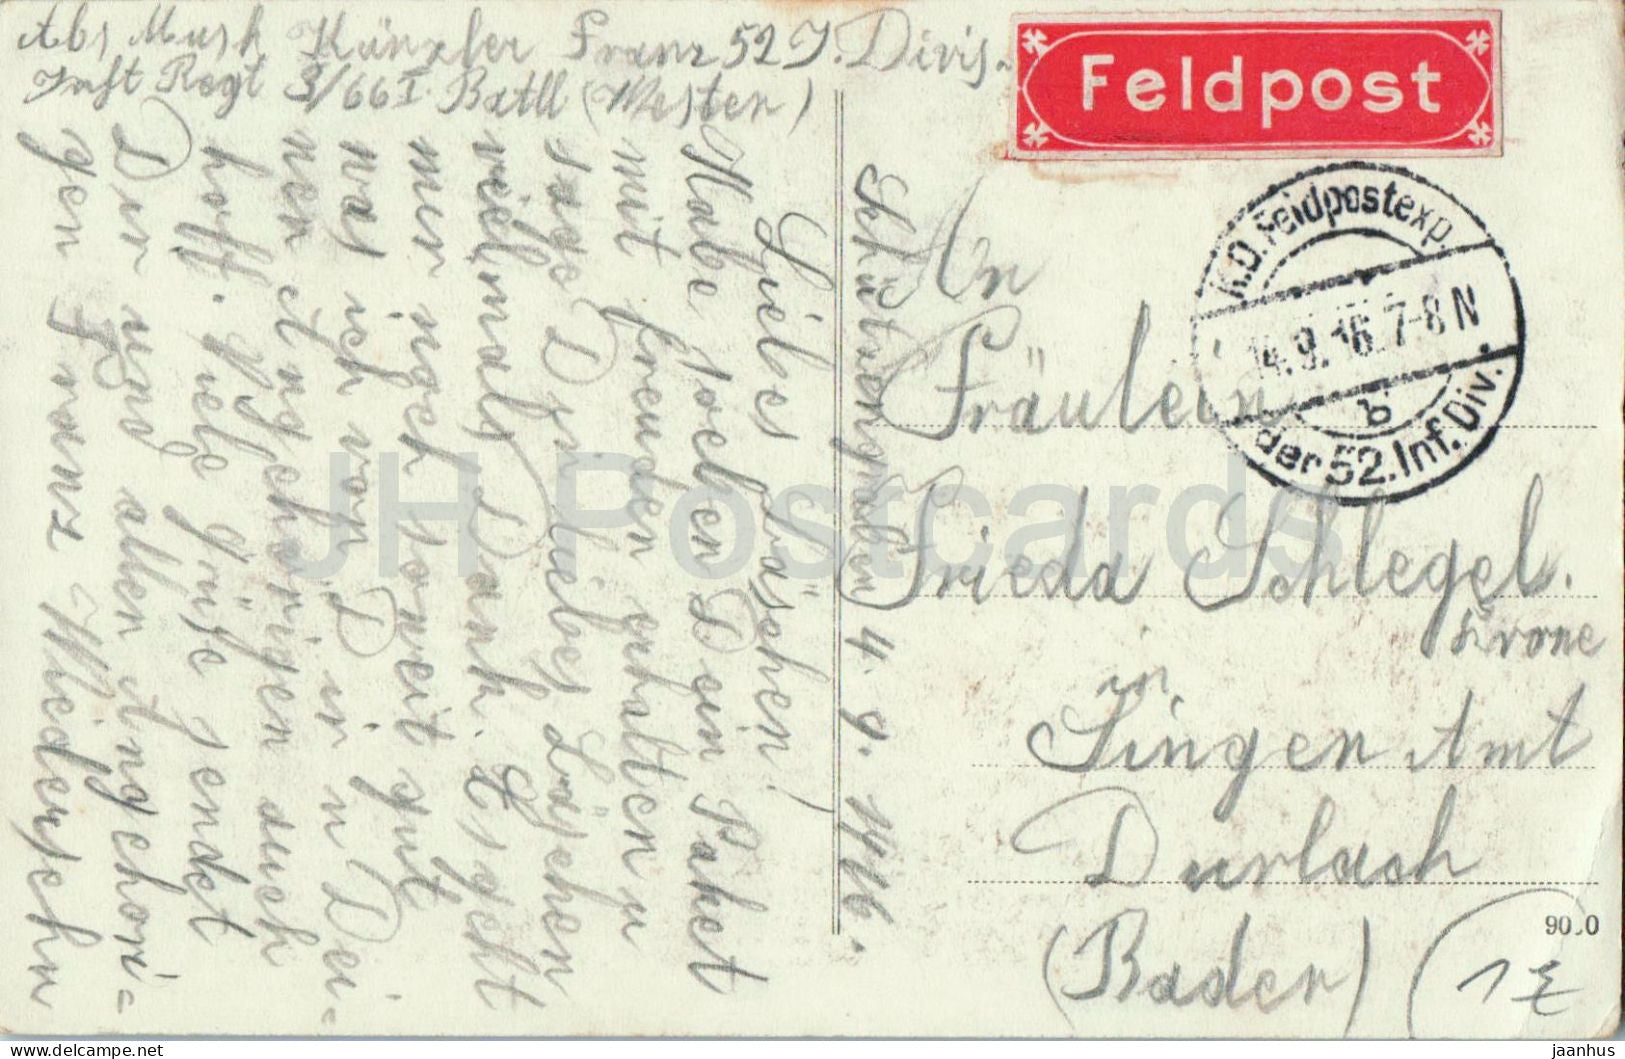 Abs Musk Künzler Franz 52 I. Divis.
Inft Regt 3/66 I. Batll (Westen)
Feldpost
K.D. Feldpostexp.
14.9.16. 7-8 N
b
der 52. Inf. Div.
Schützengraben 4. 9. 1916.
Liebes Bäschen!
Habe soeben Dein Paket
mit freuden erhalten u
sage Dir liebes Bäschen
vielmals Dank. Es geht
mir noch soweit gut
was ich von Dir u Dei-
nen Angehörigen auch
hoff. Viele Grüße sendet
Dir und allen Angehöri=
gen Franz Wiedersehn
An
Fräulein
Frieda Schlegel.
Krone
in
Singen Amt
Durlach
(Bader)
90.0
JH Postcards
delcampe.net
jaanhus